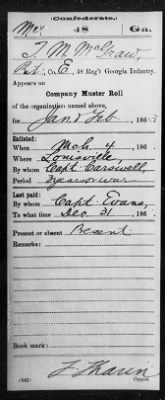 Confederate.
Mc 48 Ga.
T. M. McGraw,
Pvt, Co. E, 48 Reg't Georgia Infantry.
Appears on
Company Muster Roll
of the organization named above,
for Jan & Feb, 1863
Enlisted:
When Mch. 4, 186
Where Louisville,
By whom Capt Carswell,
Period 3 years or war
Last paid:
By whom Capt Evans,
To what time Dec. 31, 186
Present or absent Present
Remarks:
Book mark:
(642)
Copyist.